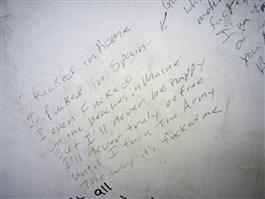 I fucked in Rome
I fucked in Spain
I even fucked
On the beaches in Maine
But I'll never be happy
I'll never truly be free
Until I fuck The Army
The way its fucked me
all